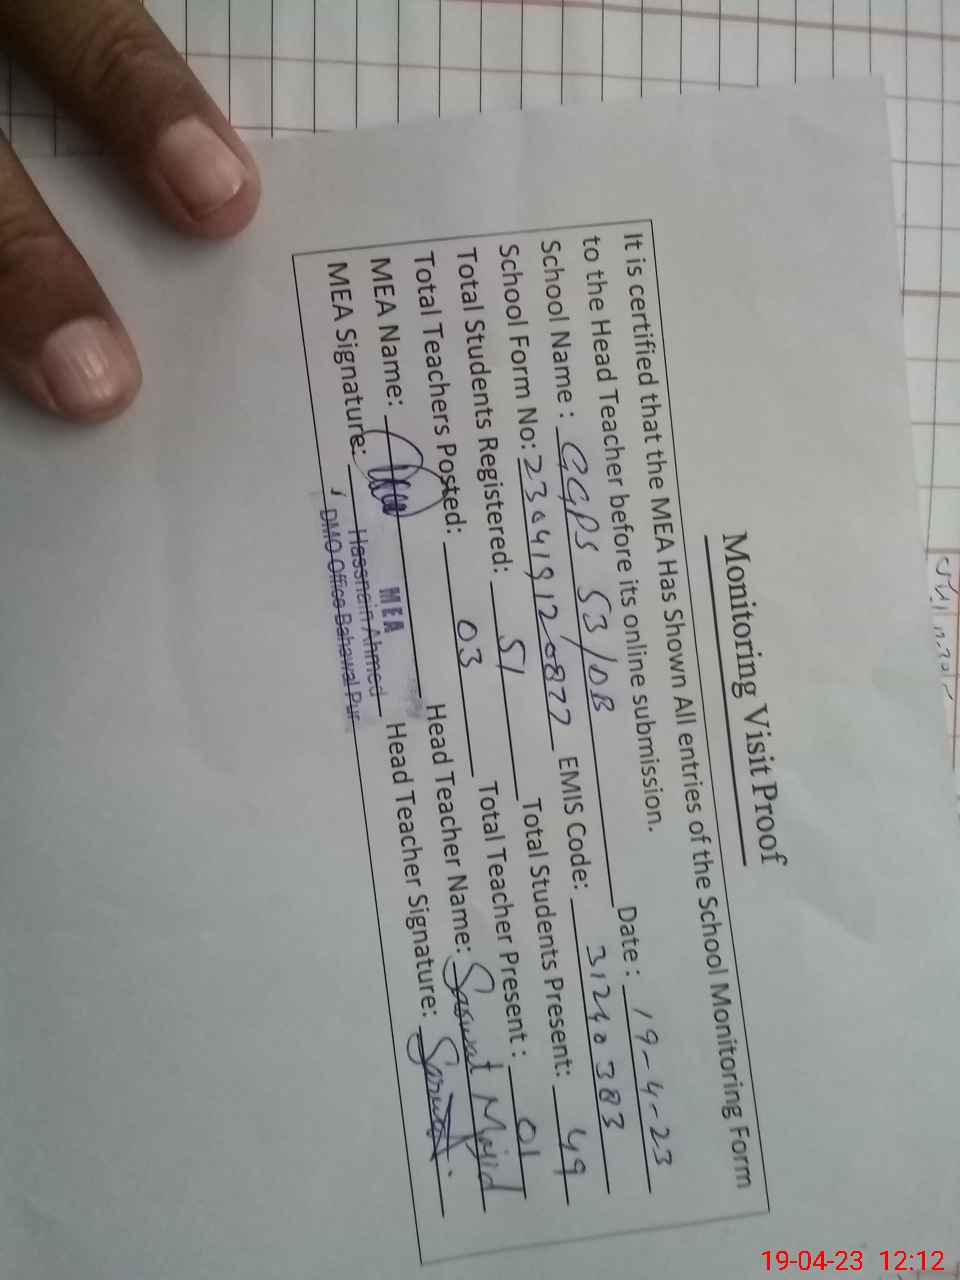 Monitoring Visit Proof
It is certified that the MEA Has Shown All entries of the School Monitoring Form
to the Head Teacher before its online submission.
School Name : GGPS 53/DB Date : 19-4-23
School Form No: 2304191220877 EMIS Code: 31240383
Total Students Registered: 51 Total Students Present: 49
Total Teachers Posted: 03 Total Teacher Present : 01
MEA Name: MEA Head Teacher Name: Sarwat Majid
MEA Signature: Hassnain Ahmed Head Teacher Signature: Sarwat
DMO Office Bahawal Pur
19-04-23 12:12